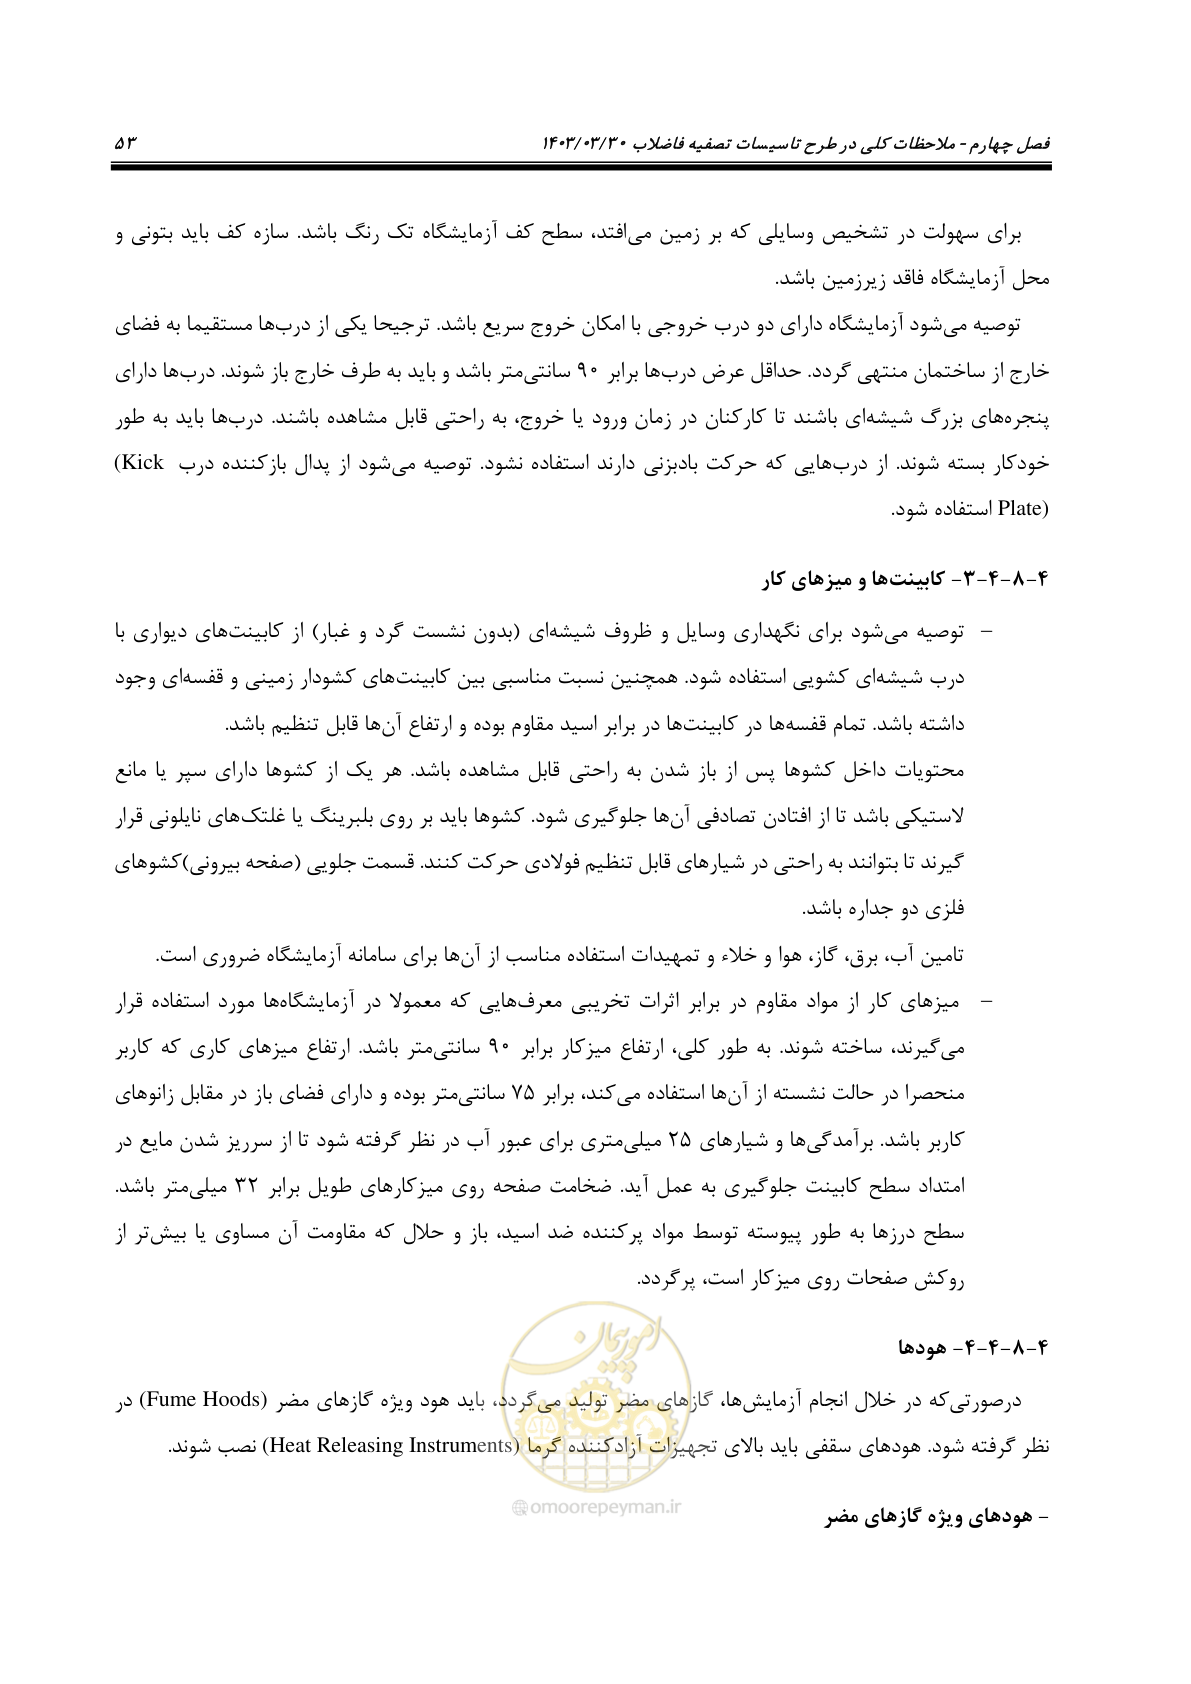 فصل چهارم - ملاحظات کلی در طرح تاسیسات تصفیه فاضلاب ۱۴۰۳/۰۳/۳۰ ۵۳
برای سهولت در تشخیص وسایلی که بر زمین می‌افتد، سطح کف آزمایشگاه تک رنگ باشد. سازه کف باید بتونی و
محل آزمایشگاه فاقد زیرزمین باشد.
توصیه می‌شود آزمایشگاه دارای دو درب خروجی با امکان خروج سریع باشد. ترجیحا یکی از درب‌ها مستقیما به فضای
خارج از ساختمان منتهی گردد. حداقل عرض درب‌ها برابر ۹۰ سانتی‌متر باشد و باید به طرف خارج باز شوند. درب‌ها دارای
پنجره‌های بزرگ شیشه‌ای باشند تا کارکنان در زمان ورود یا خروج، به راحتی قابل مشاهده باشند. درب‌ها باید به طور
خودکار بسته شوند. از درب‌هایی که حرکت بادبزنی دارند استفاده نشود. توصیه می‌شود از پدال بازکننده درب (Kick
Plate) استفاده شود.
۴-۸-۴-۳- کابینت‌ها و میزهای کار
– توصیه می‌شود برای نگهداری وسایل و ظروف شیشه‌ای (بدون نشست گرد و غبار) از کابینت‌های دیواری با
درب شیشه‌ای کشویی استفاده شود. همچنین نسبت مناسبی بین کابینت‌های کشودار زمینی و قفسه‌ای وجود
داشته باشد. تمام قفسه‌ها در کابینت‌ها در برابر اسید مقاوم بوده و ارتفاع آن‌ها قابل تنظیم باشد.
محتویات داخل کشوها پس از باز شدن به راحتی قابل مشاهده باشد. هر یک از کشوها دارای سپر یا مانع
لاستیکی باشد تا از افتادن تصادفی آن‌ها جلوگیری شود. کشوها باید بر روی بلبرینگ یا غلتک‌های نایلونی قرار
گیرند تا بتوانند به راحتی در شیارهای قابل تنظیم فولادی حرکت کنند. قسمت جلویی (صفحه بیرونی)کشوهای
فلزی دو جداره باشد.
تامین آب، برق، گاز، هوا و خلاء و تمهیدات استفاده مناسب از آن‌ها برای سامانه آزمایشگاه ضروری است.
– میزهای کار از مواد مقاوم در برابر اثرات تخریبی معرف‌هایی که معمولا در آزمایشگاه‌ها مورد استفاده قرار
می‌گیرند، ساخته شوند. به طور کلی، ارتفاع میزکار برابر ۹۰ سانتی‌متر باشد. ارتفاع میزهای کاری که کاربر
منحصرا در حالت نشسته از آن‌ها استفاده می‌کند، برابر ۷۵ سانتی‌متر بوده و دارای فضای باز در مقابل زانوهای
کاربر باشد. برآمدگی‌ها و شیارهای ۲۵ میلی‌متری برای عبور آب در نظر گرفته شود تا از سرریز شدن مایع در
امتداد سطح کابینت جلوگیری به عمل آید. ضخامت صفحه روی میزکارهای طویل برابر ۳۲ میلی‌متر باشد.
سطح درزها به طور پیوسته توسط مواد پرکننده ضد اسید، باز و حلال که مقاومت آن مساوی یا بیش‌تر از
روکش صفحات روی میزکار است، پرگردد.
۴-۸-۴-۴- هودها
درصورتی‌که در خلال انجام آزمایش‌ها، گازهای مضر تولید می‌گردد، باید هود ویژه گازهای مضر (Fume Hoods) در
نظر گرفته شود. هودهای سقفی باید بالای تجهیزات آزادکننده گرما (Heat Releasing Instruments) نصب شوند.
امور پیمان
omoorepeyman.ir
- هودهای ویژه گازهای مضر